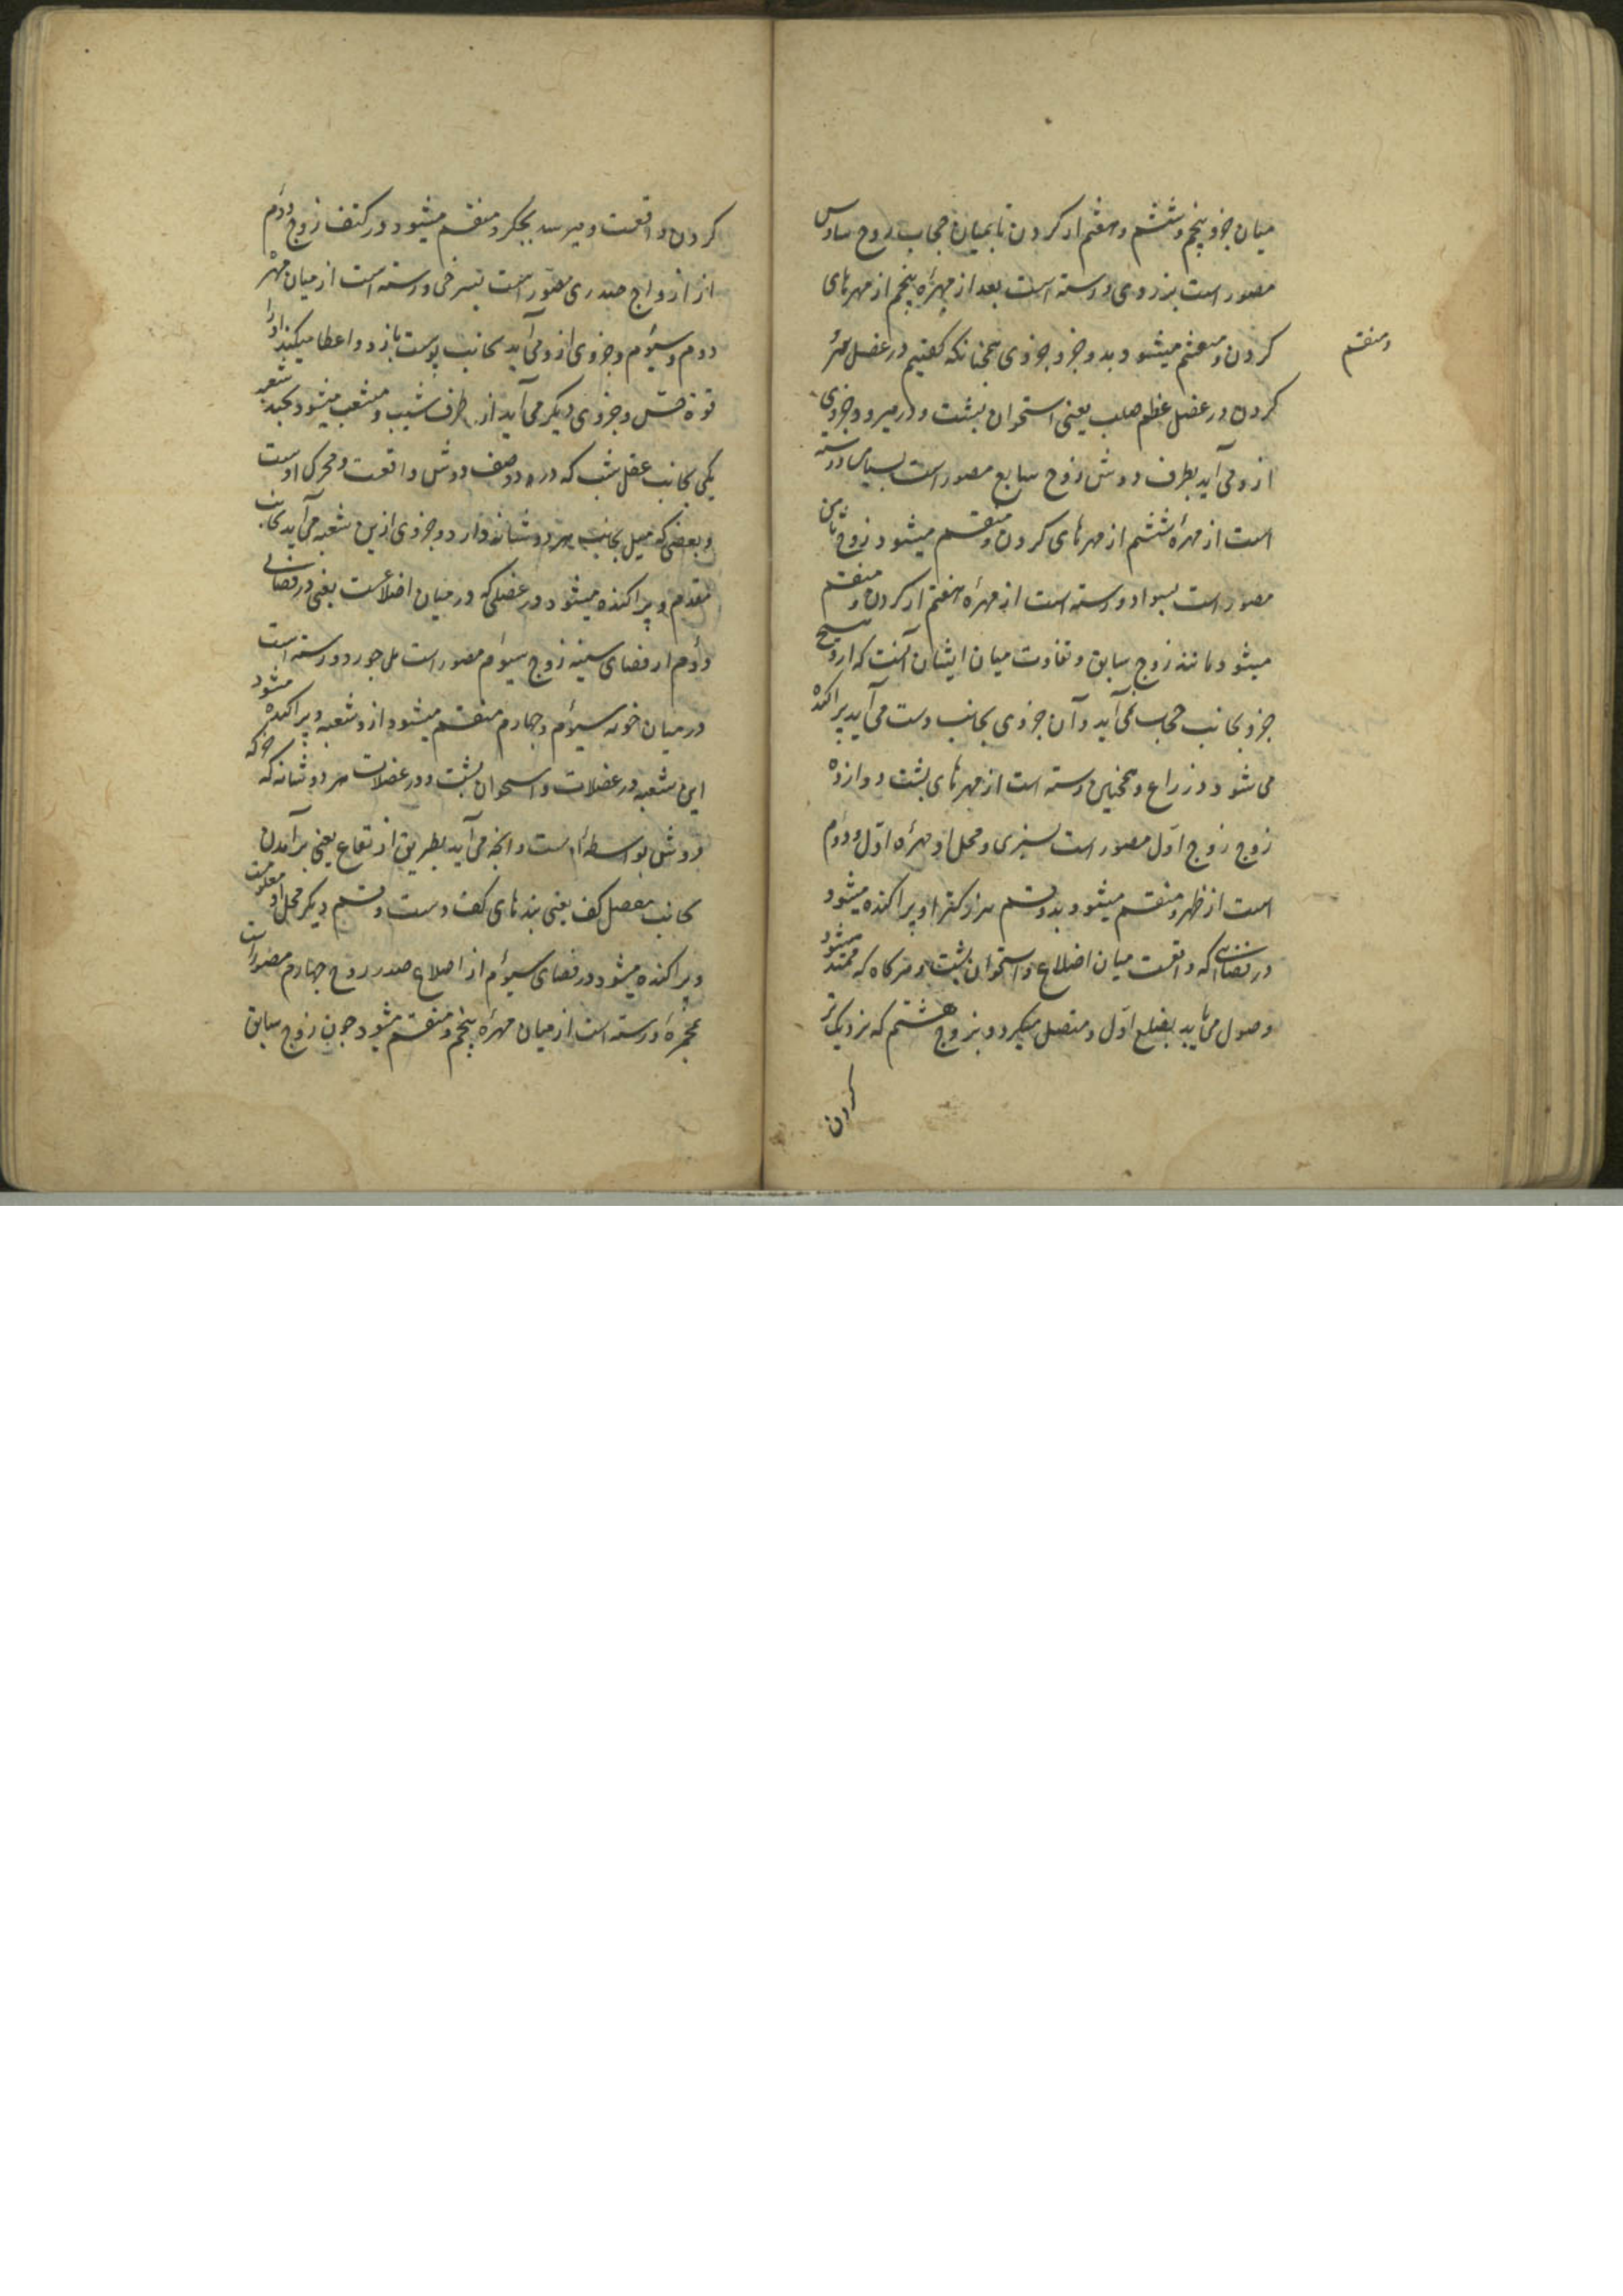 میان جزو پنجم و ششم و هفتم از کردن تا بمیان حجاب زوج سادس
مصور است بزردی و رسته است بعد از مهرهٔ پنجم از مهرهای
کردن و منقسم میشود بدو جزو جزوی همچنانکه کفتیم در عضل سر و
ومنقسم
کردن در عضل عظم صلب یعنی استخوان پشت و در میرود و جزوی
ازو می آید بطرف دوش زوج سابع مصور است بسیاهی و رسته
است از مهرهٔ ششم از مهرهای کردن و منقسم میشود زوج ثامن
مصور است بسواد و رسته است از مهرهٔ هفتم از کردن و منقسم
میشود مانند زوج سابق و تفاوت میان ایشان آنست که ازو هیچ
جزو بجانب حجاب نمی آید و آن جزوی بجانب دست می آید پراکنده
می شود در ذراع و همچنین رسته است از مهرهای پشت دوازده
زوج زوج اول مصور است بسبزی و محل او مهرهٔ اول و دوم
است از ظهر و منقسم میشود بدو قسم بزرکتر او پراکنده میشود
در فضائی که واقعست میان اضلاع و استخوان پشت و هرکاه که ممتد میشود
وصول می یابد بضلع اول و متصل میکردد بزوج هشتم که نزدیکتر
کردن
کردن واقعست و میرسد بجکر و منقسم میشود در کتف زوج دوم
از ازواج صدری مصور است بسرخی و رسته است از میان مهرهٔ
دوم و سیوم و جزوی ازو می آید بجانب پوست بازو و اعطا میکند او را
قوة حس و جزوی دیکر می آید از طرف شیب و منشعب میشود بچند شعبه
یکی بجانب عضل که در دو صف دوش واقعست و محرک اوست
و بعضی که میل بجانب هر دو شانه دارد و جزوی ازین شعبه می آید بجانب
مقدم و پراکنده میشود در عضلی که در میان اضلاعست یعنی در فضائی
دوم از فضای سینه زوج سیوم مصور است بلاجورد و رسته است
در میان خرزه سیوم و چهارم منقسم میشود ازو شعبه و پراکنده میشود
این شعبه در عضلات و استخوان پشت و در عضلات هر دو شانه که حرکه
دوش بواسطهٔ اوست و آنچه می آید بطریق ارتفاع یعنی برآمدن
بجانب مفصل کف یعنی بندهای کف دست و قسم دیکر محل او معلومست
و پراکنده میشود در فضای سیوم از اضلاع صدر زوج چهارم مصور است
بحمرة و رسته است از میان مهرهٔ پنجم و منقسم میشود چون زوج سابق